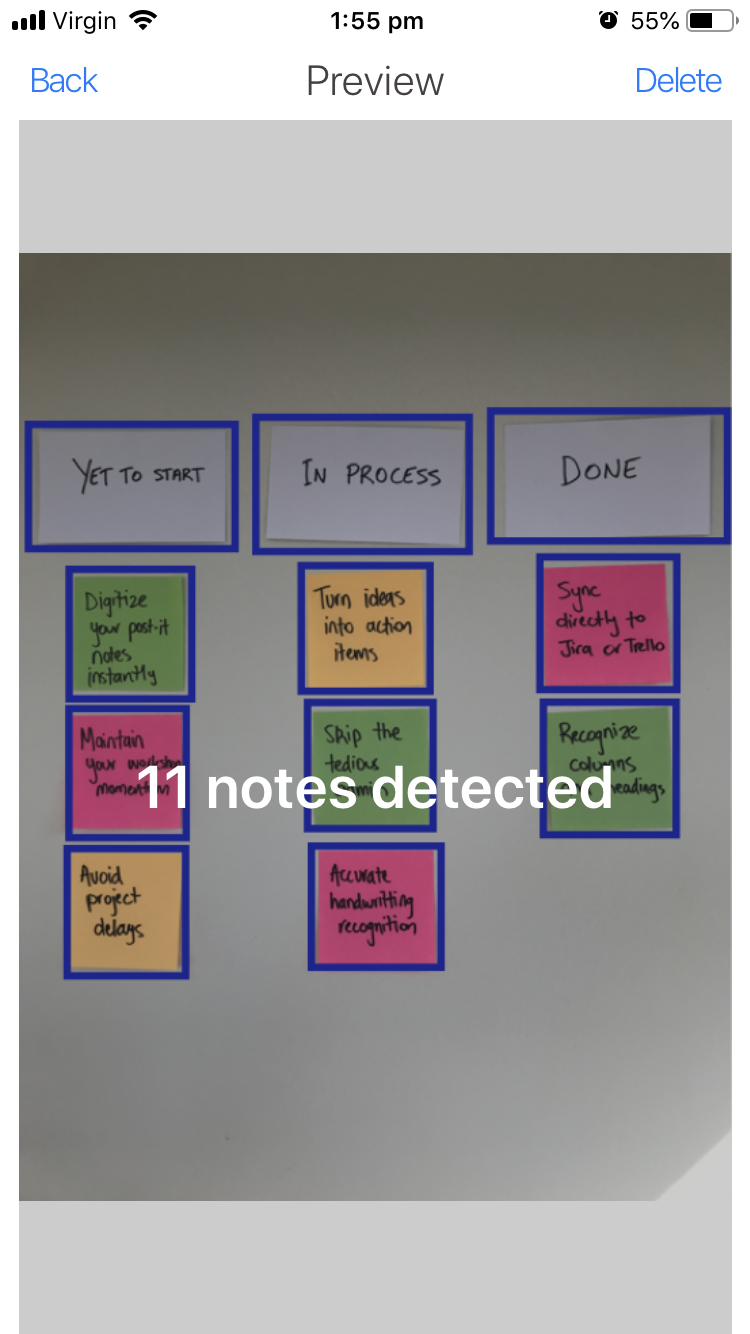 Virgin 1:55 pm 55%
Back Preview Delete
YET TO START
IN PROCESS
DONE
Digitize
your post-it
notes
instantly
Maintain
your workshop
momentum
Avoid
project
delays
Turn ideas
into action
items
Skip the
tedious
Accurate
handwritting
recognition
Sync
directly to
Jira or Trello
Recognize
columns
headings
11 notes detected